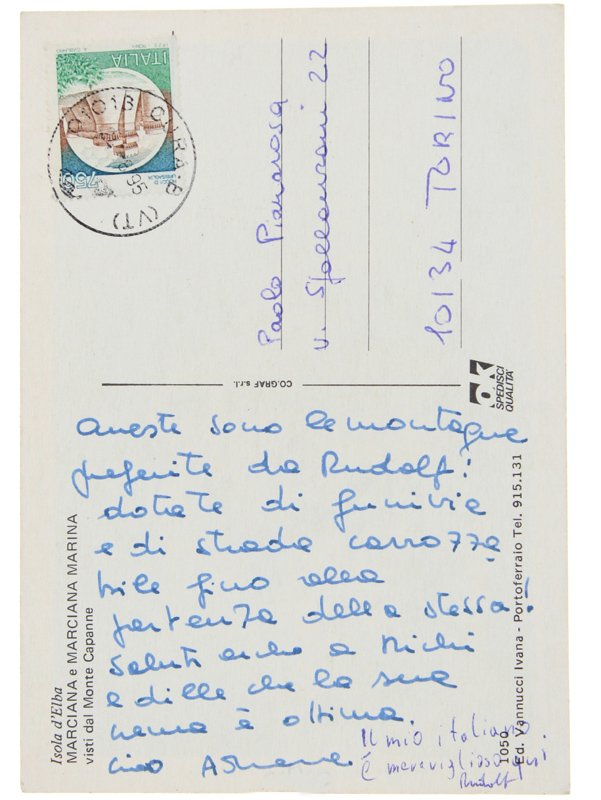 ITALIA
750
01013 (VT)
Paolo Pianarosa
v. Spallanzani 22
10134 TORINO
CO.GRAF s.r.l.
SPEDISCI
QUALITÀ
Isola d'Elba
MARCIANA e MARCIANA MARINA
visti dal Monte Capanne
1050
Ed. Vannucci Ivana - Portoferraio Tel. 915.131
Queste sono le montagne
preferite da Rudolf:
dotate di funivia
e di strada carrozza
bile fino alla
partenza della stessa!
Saluti anche a Michi
e dille che la sua
è ottima.
ciao
Il mio italiano
è meraviglioso
Rudolf